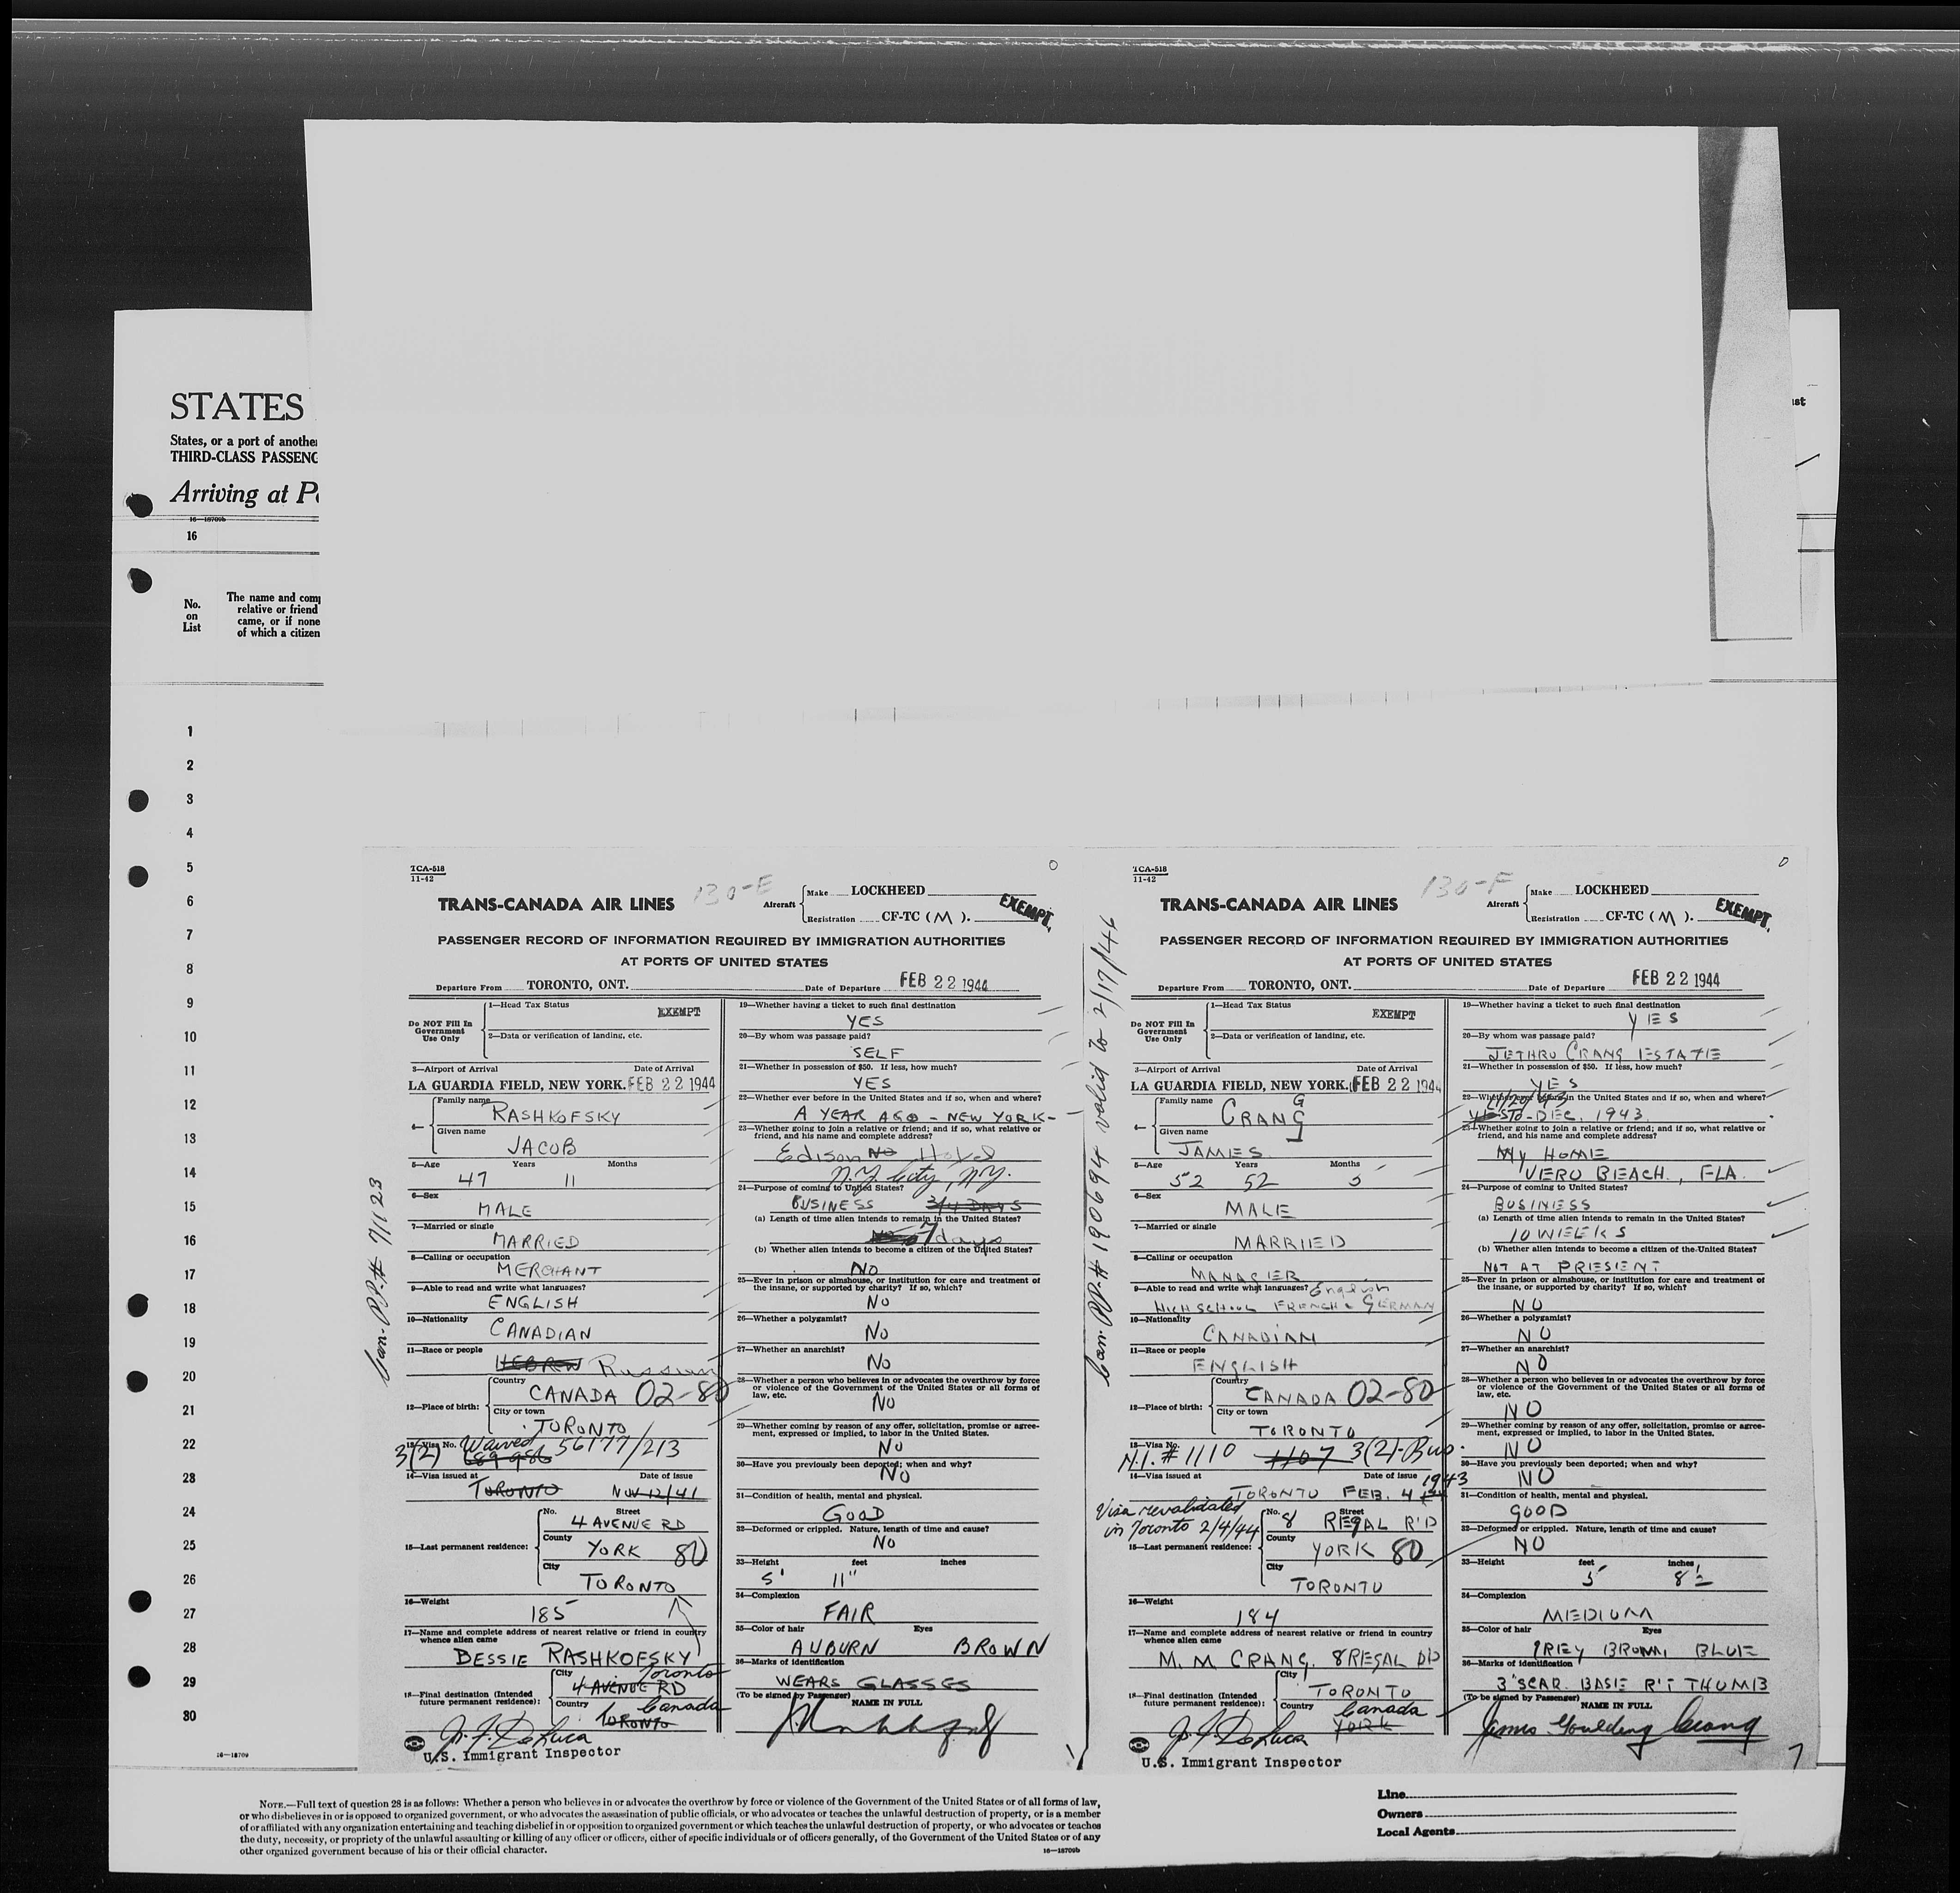 STATES
States, or a port of another
THIRD-CLASS PASSENG
Arriving at P
16—18709b
16
No.
on
List
The name and comp
relative or friend
came, or if none
of which a citizen
ist
1
2
3
4
5
6
7
8
9
10
11
12
13
14
15
16
17
18
19
20
21
22
23
24
25
26
27
28
29
30
16—18709
TCA-518
11-42
130-E
TRANS-CANADA AIR LINES
Aircraft
Make LOCKHEED
Registration CF-TC (M).
EXEMPT.
PASSENGER RECORD OF INFORMATION REQUIRED BY IMMIGRATION AUTHORITIES
AT PORTS OF UNITED STATES
Departure From TORONTO, ONT. Date of Departure FEB 22 1944
Can. PP. # 71123
Do NOT Fill In
Government
Use Only
1—Head Tax Status
EXEMPT
2—Data or verification of landing, etc.
3—Airport of Arrival Date of Arrival
LA GUARDIA FIELD, NEW YORK. FEB 22 1944
4—
Family name
RASHKOFSKY
Given name
JACOB
5—Age Years Months
47 11
6—Sex
MALE
7—Married or single
MARRIED
8—Calling or occupation
MERCHANT
9—Able to read and write what languages?
ENGLISH
10—Nationality
CANADIAN
11—Race or people
HEBREW Russian
12—Place of birth:
Country
CANADA 02-80
City or town
TORONTO
13—Visa No. Waived 56177/213
3(2) 689986
14—Visa issued at Date of issue
TORONTO NOV 12/41
15—Last permanent residence:
No. Street
4 AVENUE RD
County
YORK 80
City
TORONTO
16—Weight
185
17—Name and complete address of nearest relative or friend in country
whence alien came
BESSIE RASHKOFSKY
18—Final destination (Intended
future permanent residence):
City Toronto
4 AVENUE RD
Country Canada
TORONTO
J. F. DeLuca
U.S. Immigrant Inspector
19—Whether having a ticket to such final destination
YES
20—By whom was passage paid?
SELF
21—Whether in possession of $50. If less, how much?
YES
22—Whether ever before in the United States and if so, when and where?
A YEAR AGO - NEW YORK-
23—Whether going to join a relative or friend; and if so, what relative or
friend, and his name and complete address?
Edison NO Hotel
N.Y. City, N.Y.
24—Purpose of coming to United States?
BUSINESS 3/4 DAYS
(a) Length of time alien intends to remain in the United States?
7 days
(b) Whether alien intends to become a citizen of the United States?
NO
25—Ever in prison or almshouse, or institution for care and treatment of
the insane, or supported by charity? If so, which?
NO
26—Whether a polygamist?
NO
27—Whether an anarchist?
NO
28—Whether a person who believes in or advocates the overthrow by force
or violence of the Government of the United States or all forms of
law, etc.
NO
29—Whether coming by reason of any offer, solicitation, promise or agree-
ment, expressed or implied, to labor in the United States.
NO
30—Have you previously been deported; when and why?
NO
31—Condition of health, mental and physical.
GOOD
32—Deformed or crippled. Nature, length of time and cause?
NO
33—Height feet inches
5' 11"
34—Complexion
FAIR
35—Color of hair Eyes
AUBURN BROWN
36—Marks of identification
WEARS GLASSES
(To be signed by Passenger) NAME IN FULL
TCA-518
11-42
130-F
TRANS-CANADA AIR LINES
Aircraft
Make LOCKHEED
Registration CF-TC (M).
EXEMPT.
PASSENGER RECORD OF INFORMATION REQUIRED BY IMMIGRATION AUTHORITIES
AT PORTS OF UNITED STATES
Departure From TORONTO, ONT. Date of Departure FEB 22 1944
Can. PP. # 190694 valid to 2/17/46
Do NOT Fill In
Government
Use Only
1—Head Tax Status
EXEMPT
2—Data or verification of landing, etc.
3—Airport of Arrival Date of Arrival
LA GUARDIA FIELD, NEW YORK. FEB 22 1944
4—
Family name G
CRANG
Given name
JAMES
5—Age Years Months
52 52 5
6—Sex
MALE
7—Married or single
MARRIED
8—Calling or occupation
MANAGER
9—Able to read and write what languages? English
HIGH SCHOOL FRENCH & GERMAN
10—Nationality
CANADIAN
11—Race or people
ENGLISH
12—Place of birth:
Country
CANADA 02-80
City or town
TORONTO
13—Visa No.
N.I. # 1110 1107 3(2)-Bus.
14—Visa issued at Date of issue 1943
TORONTO FEB. 4
Visa revalidated
in Toronto 2/4/44
15—Last permanent residence:
No. Street
8 REGAL R'D
County
YORK 80
City
TORONTO
16—Weight
184
17—Name and complete address of nearest relative or friend in country
whence alien came
M. M CRANG, 8 REGAL RD
18—Final destination (Intended
future permanent residence):
City
TORONTO
Country Canada
YORK
J. F. DeLuca
U.S. Immigrant Inspector
19—Whether having a ticket to such final destination
YES
20—By whom was passage paid?
JETHRO CRANG ESTATE
21—Whether in possession of $50. If less, how much?
YES
22—Whether ever before in the United States and if so, when and where?
YES TO-DEC, 1943.
23—Whether going to join a relative or friend; and if so, what relative or
friend, and his name and complete address?
MY HOME
VERO BEACH, FLA.
24—Purpose of coming to United States?
BUSINESS
(a) Length of time alien intends to remain in the United States?
10 WEEKS
(b) Whether alien intends to become a citizen of the United States?
NOT AT PRESENT
25—Ever in prison or almshouse, or institution for care and treatment of
the insane, or supported by charity? If so, which?
NO
26—Whether a polygamist?
NO
27—Whether an anarchist?
NO
28—Whether a person who believes in or advocates the overthrow by force
or violence of the Government of the United States or all forms of
law, etc.
NO
29—Whether coming by reason of any offer, solicitation, promise or agree-
ment, expressed or implied, to labor in the United States.
NO
30—Have you previously been deported; when and why?
NO
31—Condition of health, mental and physical.
GOOD
32—Deformed or crippled. Nature, length of time and cause?
NO
33—Height feet inches
5 8½
34—Complexion
MEDIUM
35—Color of hair Eyes
GREY BROWN BLUE
36—Marks of identification
3" SCAR BASE R'T THUMB
(To be signed by Passenger) NAME IN FULL
James Goulding Crang
NOTE.—Full text of question 28 is as follows: Whether a person who believes in or advocates the overthrow by force or violence of the Government of the United States or of all forms of law,
or who disbelieves in or is opposed to organized government, or who advocates the assassination of public officials, or who advocates or teaches the unlawful destruction of property, or is a member
of or affiliated with any organization entertaining and teaching disbelief in or opposition to organized government or which teaches the unlawful destruction of property, or who advocates or teaches
the duty, necessity, or propriety of the unlawful assaulting or killing of any officer or officers, either of specific individuals or of officers generally, of the Government of the United States or of any
other organized government because of his or their official character.
16—18709b
Line
Owners
Local Agents